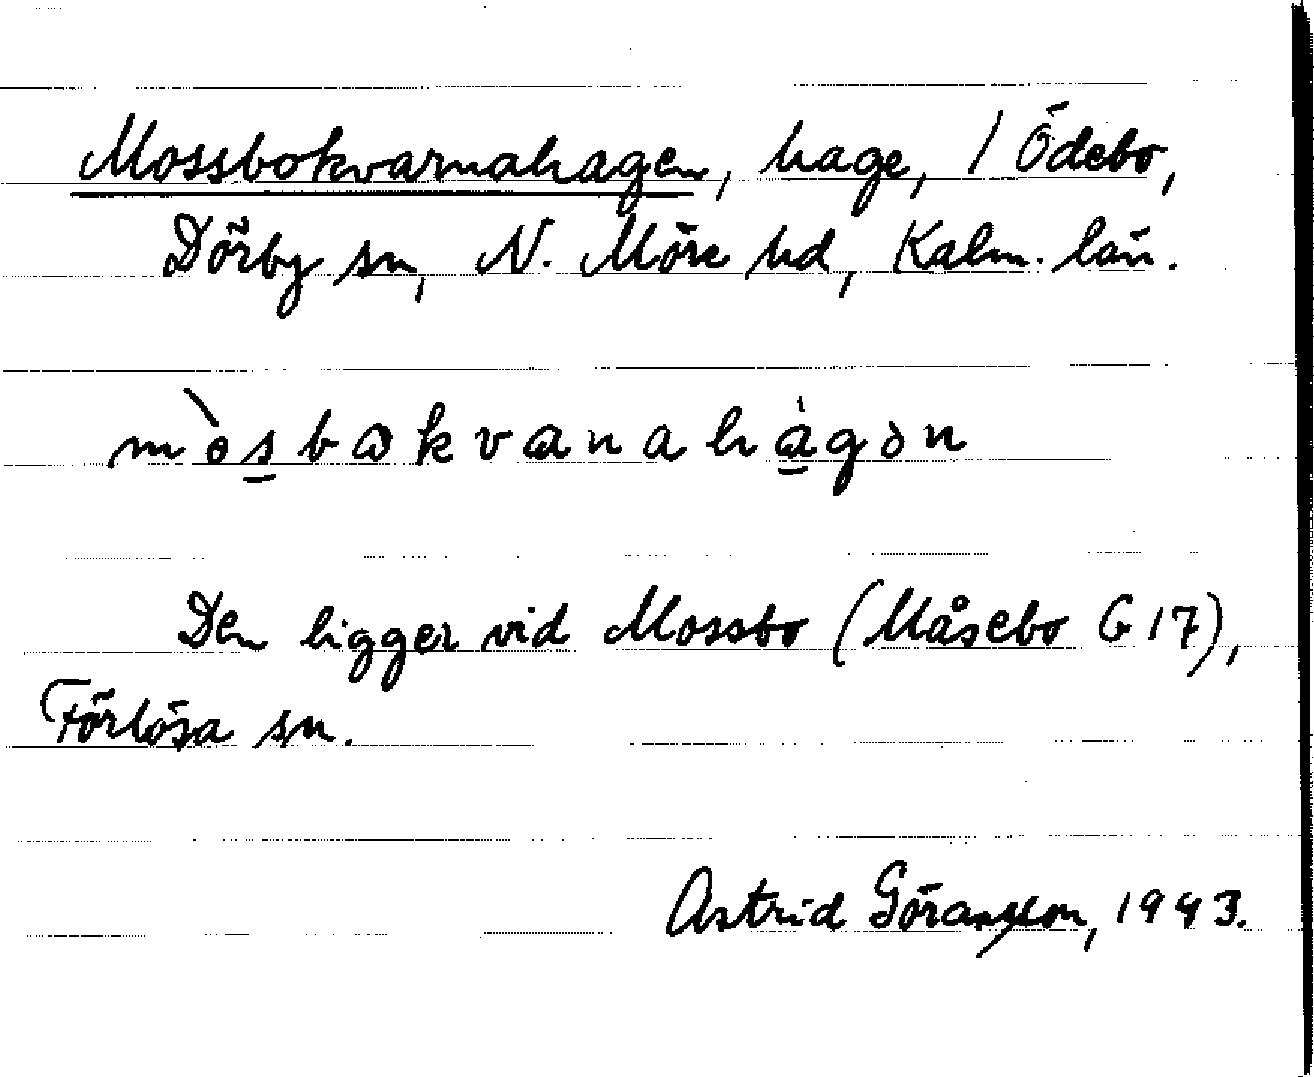 Mossbokvarnahagen, hage, 1 Ödebo,
Dörby sn, N. Möre hd, Kalm. län.
mòsbokvanahàgən
Den ligger vid Mossbo (Måsebo G 17),
Förlösa sn.
Astrid Göransson, 1943.